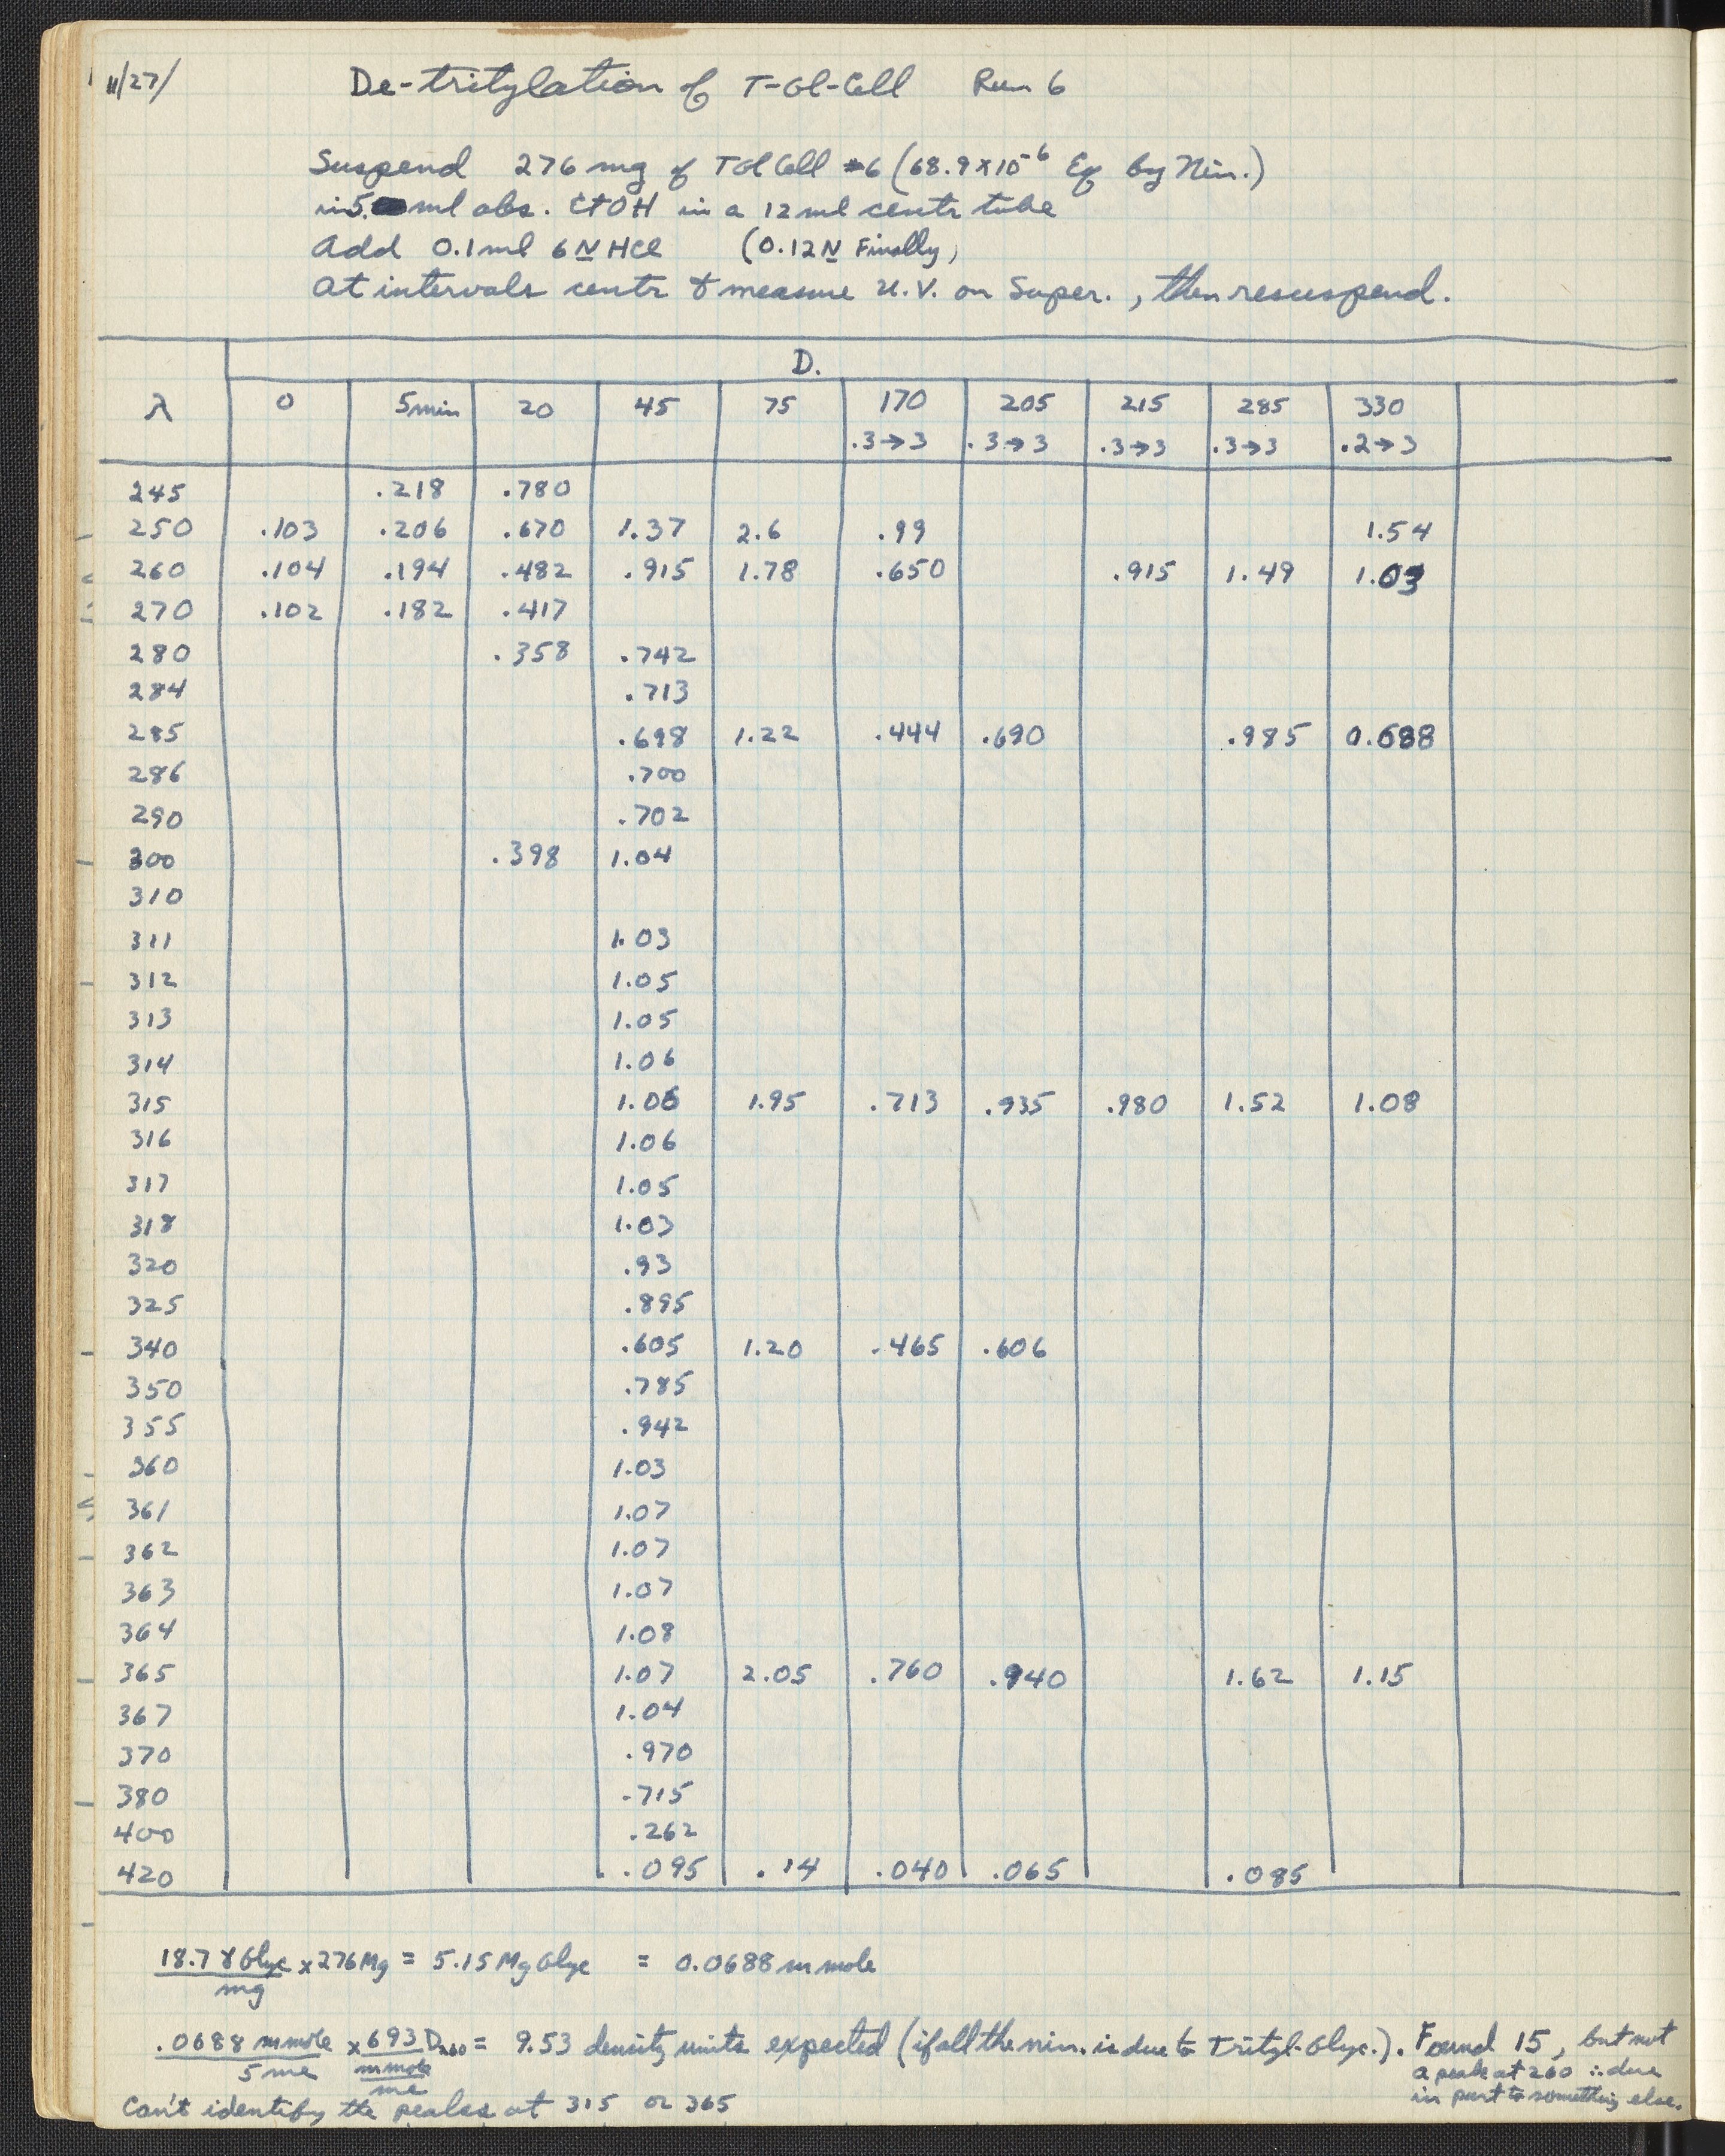 11/27/ De-tritylation of T-Gl-Cell Run 6
Suspend 276 mg of TGlCell #6 (68.9x10⁻⁶ Eq by Nin.)
in 5 ml abs. EtOH in a 12 ml centr tube
Add 0.1 ml 6 N HCl (0.12 N Finally)
At intervals centr & measure U.V. on Super., then resuspend.
D.
λ 0 5min 20 45 75 170 205 215 285 330
.3→3 .3→3 .3→3 .3→3 .2→3
245 .218 .780
250 .103 .206 .670 1.37 2.6 .99 1.54
260 .104 .194 .482 .915 1.78 .650 .915 1.49 1.03
270 .102 .182 .417
280 .358 .742
284 .713
285 .698 1.22 .444 .690 .985 0.688
286 .700
290 .702
300 .398 1.04
310
311 1.03
312 1.05
313 1.05
314 1.06
315 1.06 1.95 .713 .935 .980 1.52 1.08
316 1.06
317 1.05
318 1.03
320 .93
325 .895
340 .605 1.20 .465 .606
350 .785
355 .942
360 1.03
361 1.07
362 1.07
363 1.07
364 1.08
365 1.07 2.05 .760 .940 1.62 1.15
367 1.04
370 .970
380 .715
400 .262
420 .095 .14 .040 .065 .085
18.7 γ Glyc x 276 Mg = 5.15 Mg Glyc = 0.0688 m mole
mg
.0688 mmole x 693 D₂₆₀ = 9.53 density units expected (if all the nin. is due to Trityl-Glyc.). Found 15, but not
5 ml mmole a peak at 260 ∴ due
ml in part to something else.
Can't identify the peaks at 315 or 365